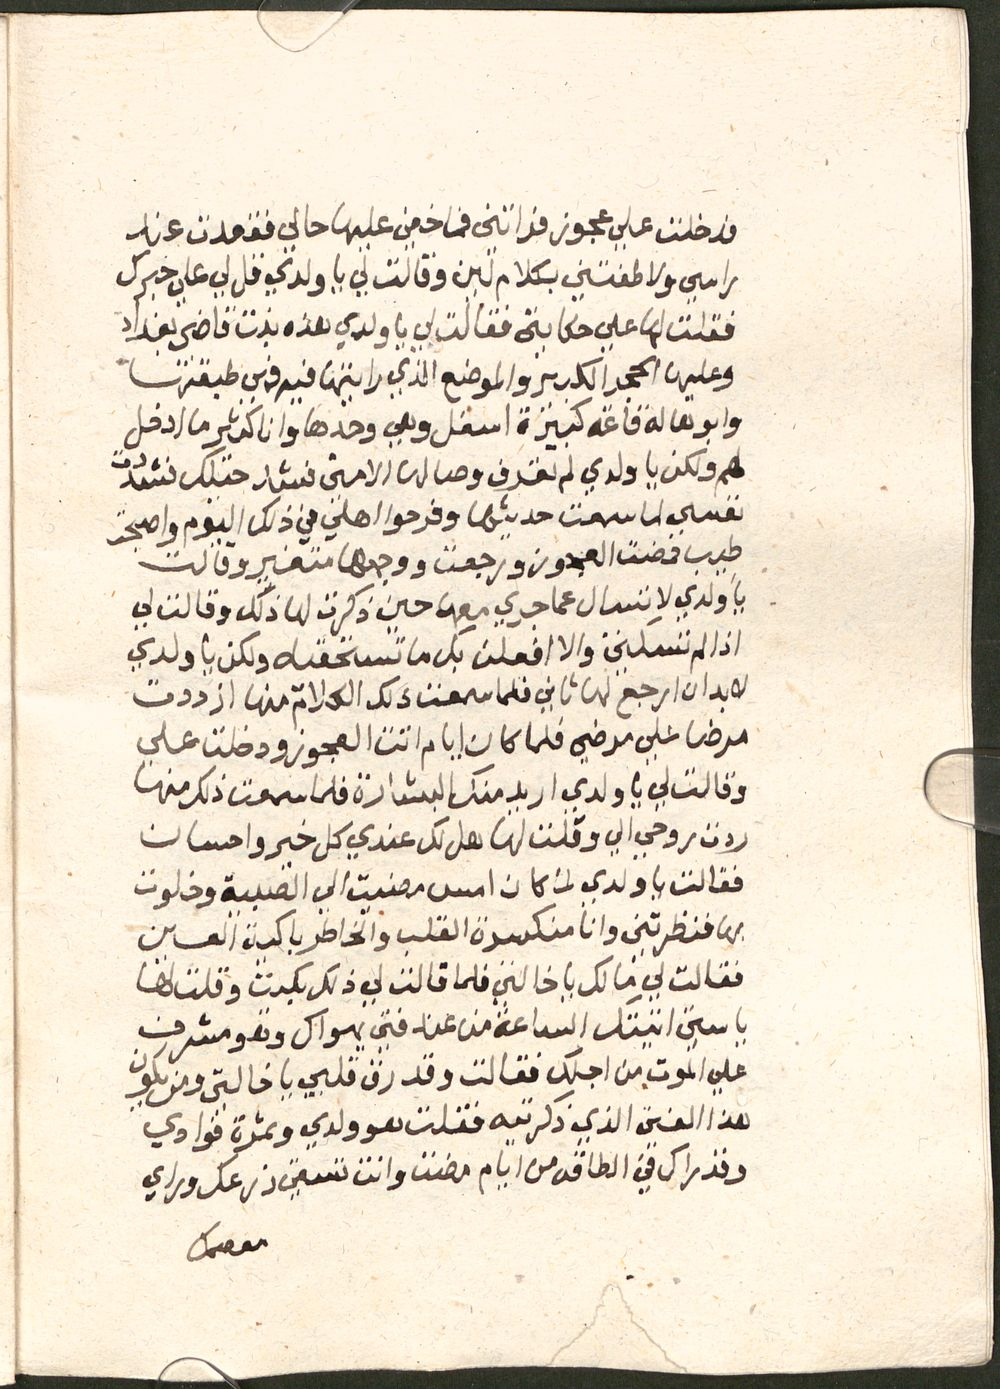 فدخلت علي عجوز فراتني فما خفي عليها حالي فقعدت عند
راسي ولاطفتني بكلام لين وقالت لي يا ولدي قل لي علي خبرك
فقلت لها علي حكايتي فقالت لي يا ولدي هذه بنت قاضي بغداد
وعليها الحجر الكبير والموضع الذي رايتها فيه في طبقتها
وابوها له قاعة كبيرة اسفل وهي وحدها وانا كثير ما ادخل
لهم ولكن يا ولدي لم تعرف وصالها الا مني فشد حيلك فتشددت
نفسي لما سمعت حديثها وفرحوا اهلي في ذلك اليوم واصبحت
طيب فمضت العجوز ورجعت ووجهها متغير وقالت
يا ولدي لا تسال عما جري معها حين ذكرت لها ذلك وقالت لي
اذا لم تسكتي والا افعلن بك ما تستحقيه ولكن يا ولدي
لابد ان ارجع لها ثاني فلما سمعت ذلك الكلام منها ازددت
مرضا علي مرضي فلما كان ايام اتت العجوز ودخلت علي
وقالت لي يا ولدي اريد منك البشارة فلما سمعت ذلك منها
ردت روحي الي وقلت لها هل لك عندي كل خير واحسان
فقالت يا ولدي لما كان امس مضيت الي الصبية وخلوت
بها فنظرتني وانا منكسرة القلب والخاطر باكية العين
فقالت لي مالك يا خالتي فلما قالت لي ذلك بكيت وقلت لها
يا ستي اتيتك الساعة من عند فتي يهواك وهو مشرف
علي الموت من اجلك فقالت وقد رق قلبي يا خالتي ومن يكون
هذا الفتي الذي ذكرتيه فقلت هو ولدي وثمرة فوادي
وقد راك في الطاقه من ايام مضت وانت تسقي زرعك وراي
معصمك